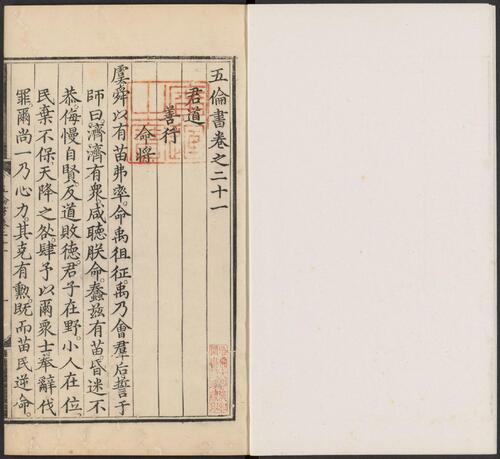 五倫書卷之二十一
君道
善行
命將
虞舜以有苗弗率。命禹徂征。禹乃會羣后誓于
師曰濟濟有衆咸聽朕命。蠢兹有苗。昏迷不
恭。侮慢自賢。反道敗德。君子在野。小人在位。
民棄不保。天降之咎。肆予以爾衆士。奉辭伐
罪。爾尚一乃心力。其克有勲。既而苗民逆命。